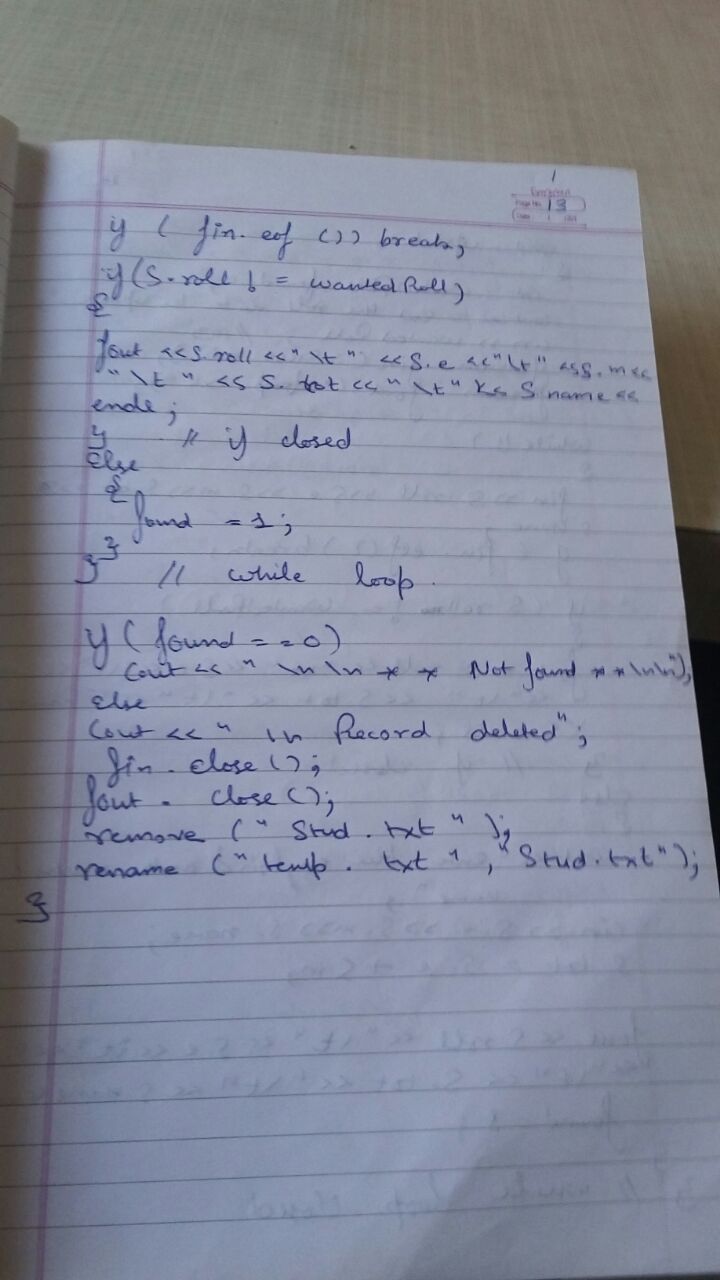 13
if (fin.eof ()) break;
if (S.roll != wanted Roll)
{
fout <<S.roll <<"\t" <<S.e <<"\t" <<S.m<<
"\t" << S.tot <<"\t" << S.name <<
endl;
} // if closed
Else
{
found = 1;
}
} // while loop.
if (found == 0)
Cout << "\n\n * * Not found **\n\n");
else
Cout << "\n Record deleted";
fin.close();
fout. close();
remove ("Stud.txt");
rename ("temp.txt", "Stud.txt");
}